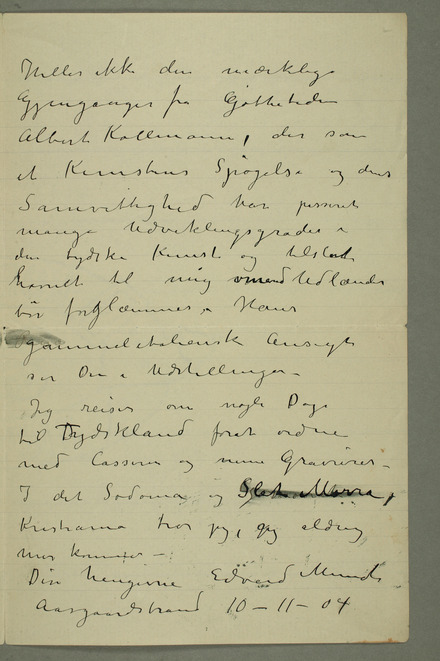 Heller ikke den mærkelige
Gjenganger fra Göthetiden
Albert Kollmann, der som
et Kunstens Spøgelse og dens
Samvittighed har passeret
mange Udviklingsgrader i
den tydske Kunst og tilsted
kornet til mig omend Udlænding
bør forglemmes. Hans
gammelitaliensk Ansigt
ser De i Udstillingen –
Jeg reiser om nogle Dage
til Tydskland forat ordne
med Cassirer og mine Gravurer –
I det Sodoma og
Kristiania tror jeg, jeg aldrig
mer kommer –
Din hengivne Edvard Munch
Aasgaardstrand 10 – 11 – 04